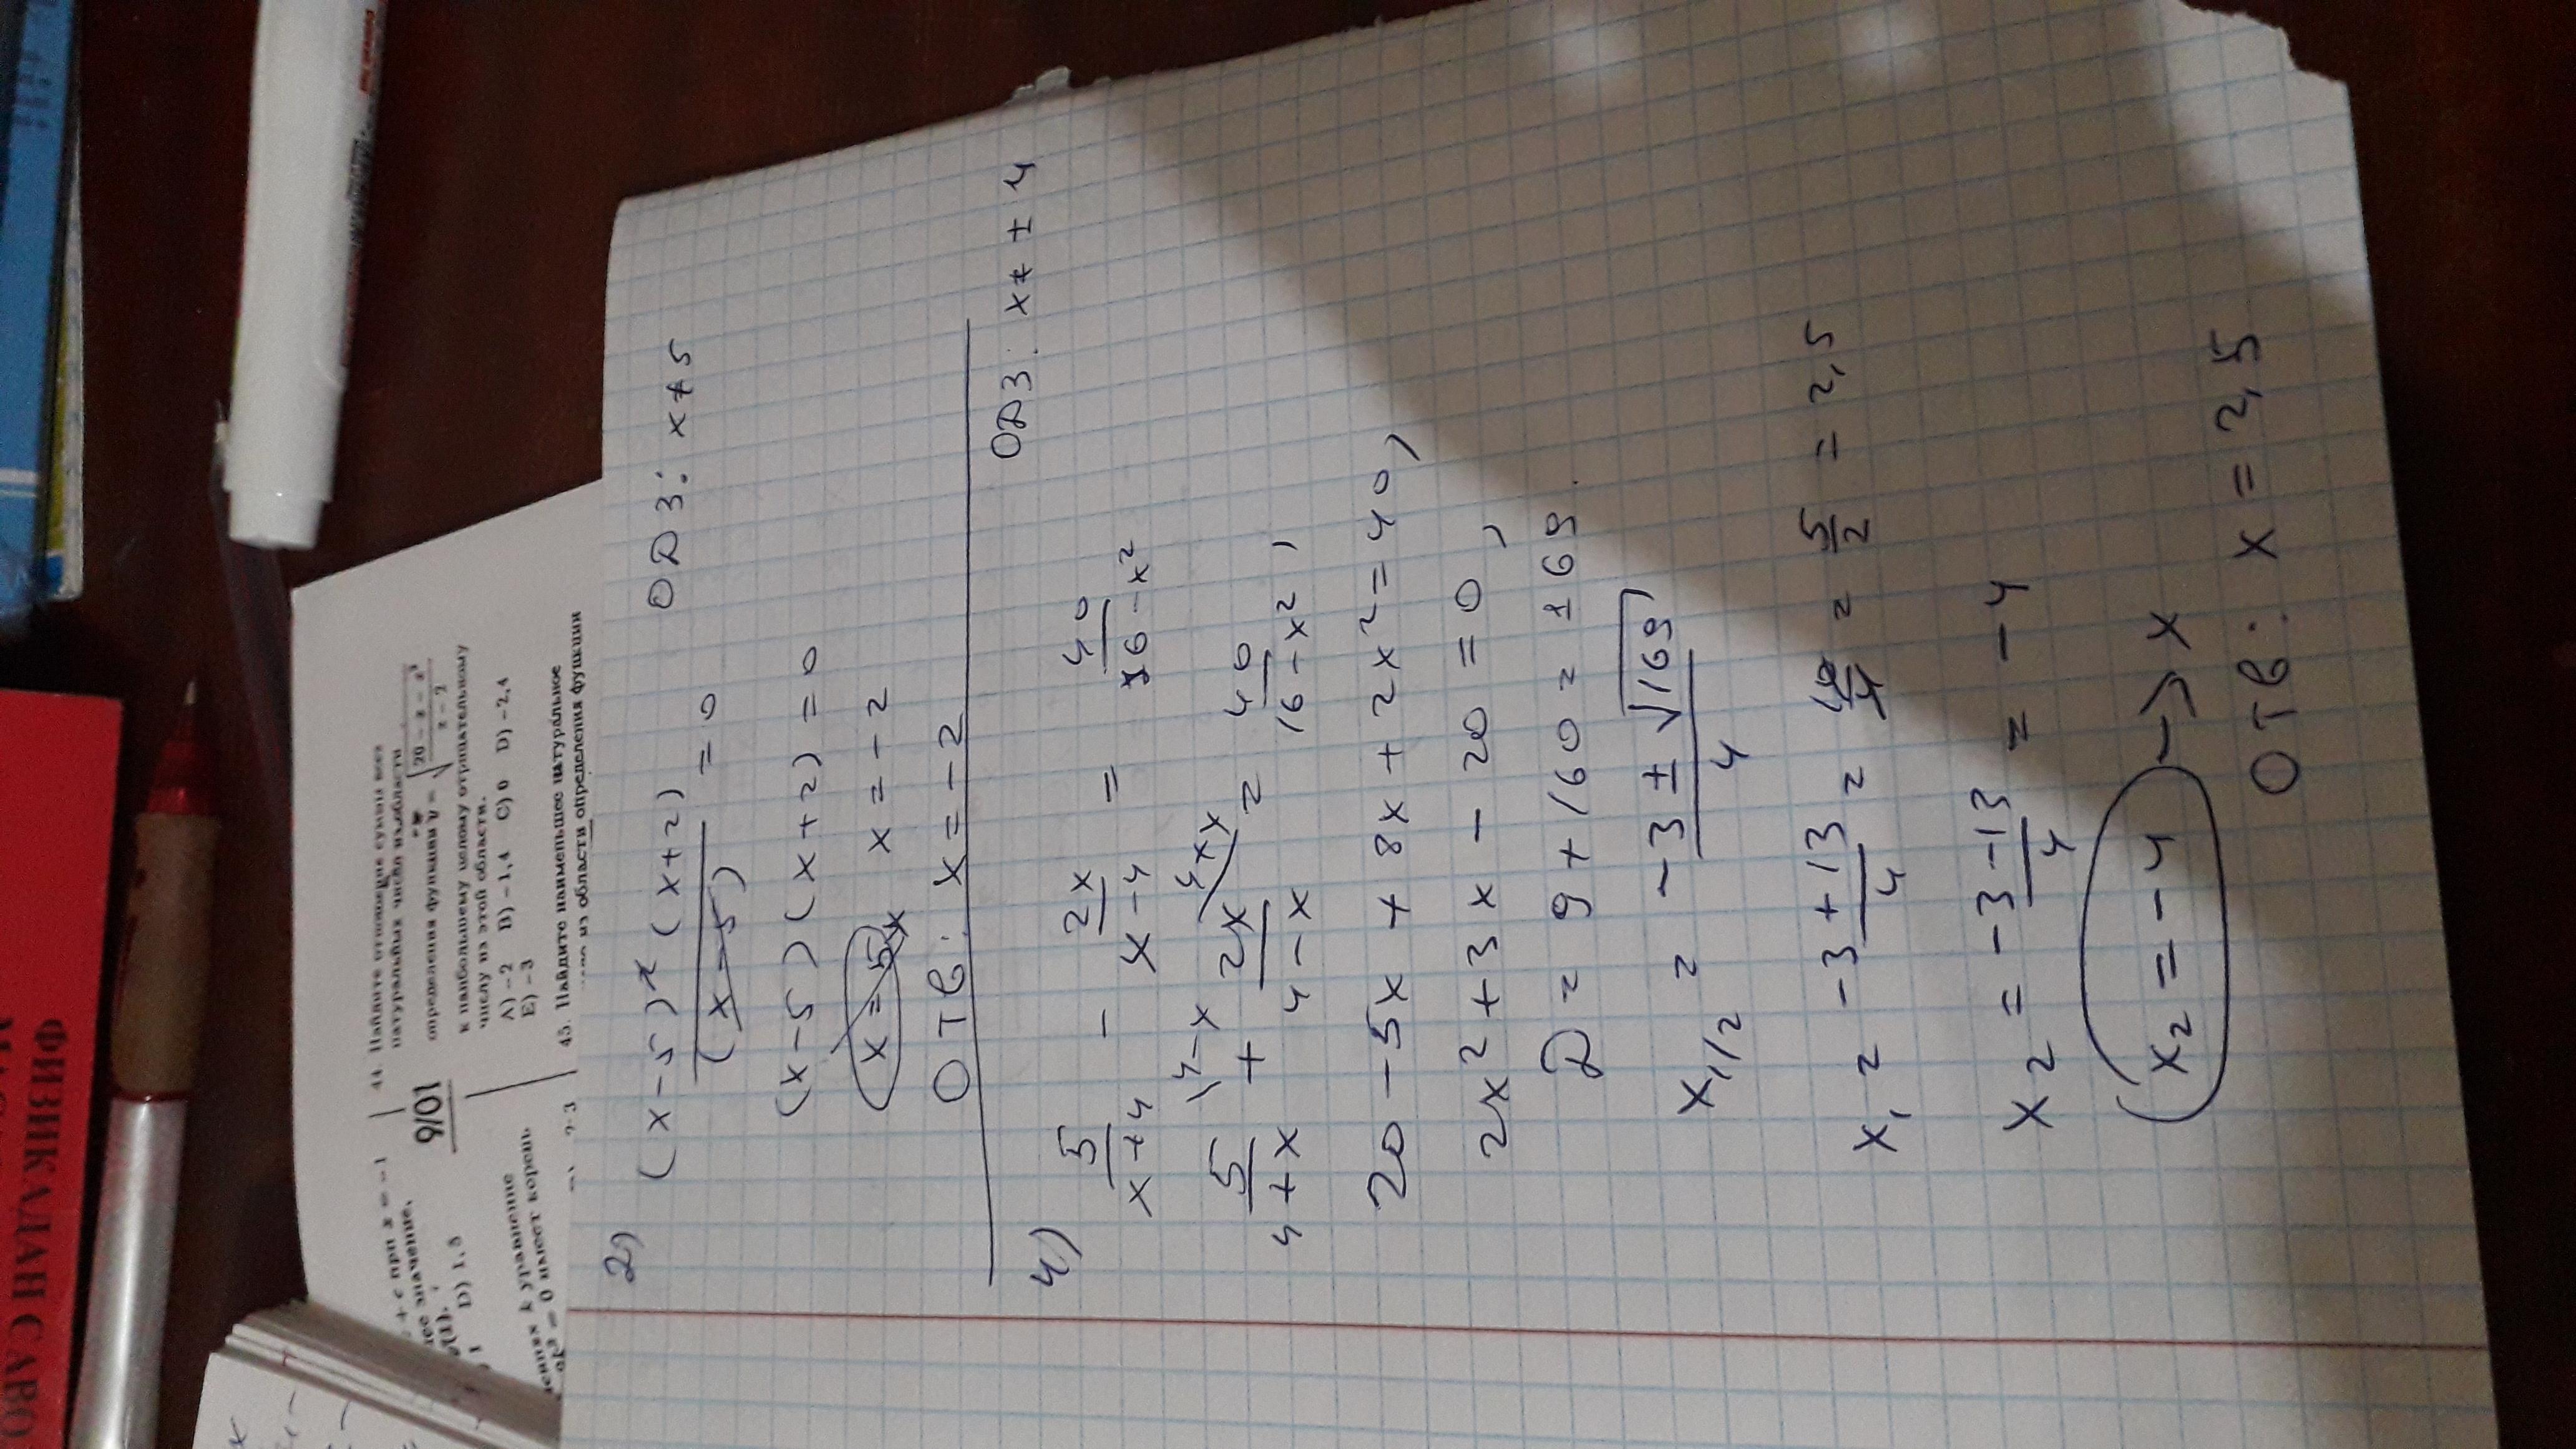 2) (x-5)² (x+2)/(x-5) = 0 ОДЗ: x≠5
(x-5)(x+2)=0
x=5 x x=-2
Отв: x=-2
4) 5/(x+4) - 2x/(x-4) = 40/(16-x²) ОДЗ: x≠±4
5/(4+x) \4-x + 2x/(4-x) /4+x = 40/(16-x²),
20-5x+8x+2x²=40,
2x²+3x-20=0,
D=9+160=169.
x1/2 = (-3±√169)/4
x1 = (-3+13)/4 = 10/4 = 5/2 = 2,5
x2 = (-3-13)/4 = -4
(x2=-4) → x
Отв: x=2,5
44. Найдите отношение суммы всех
натуральных чисел из области
определения функции y = √((20-x-x²)/(x-2))
к наибольшему целому отрицательному
числу из этой области.
A) -2 B) -1,4 C) 0 D) -2,4
E) -3
45. Найдите наименьшее натуральное
из области определения функции
9/01
+ c при x = -1
значение.
D) 1,5
k уравнение
= 0 имеет корень
ФИЗИКАДАН САВО